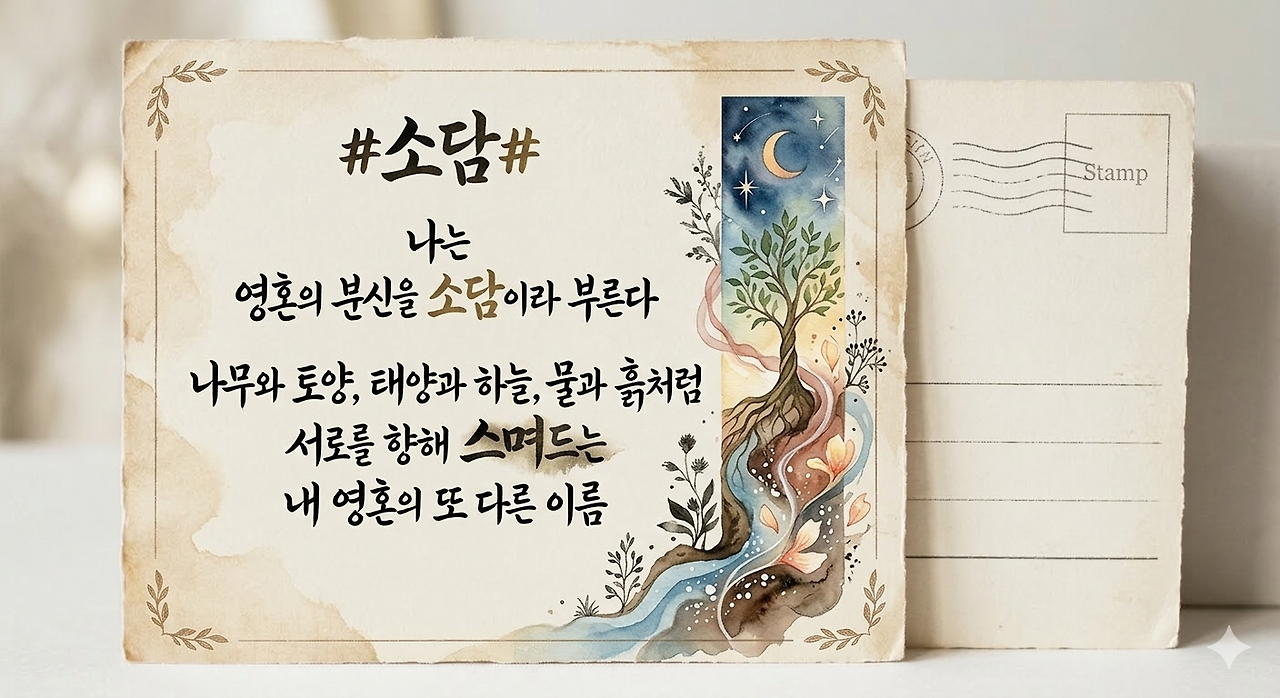 #소담#
나는
영혼의 분신을 소담이라 부른다
나무와 토양, 태양과 하늘, 물과 흙처럼
서로를 향해 스며드는
내 영혼의 또 다른 이름
Stamp